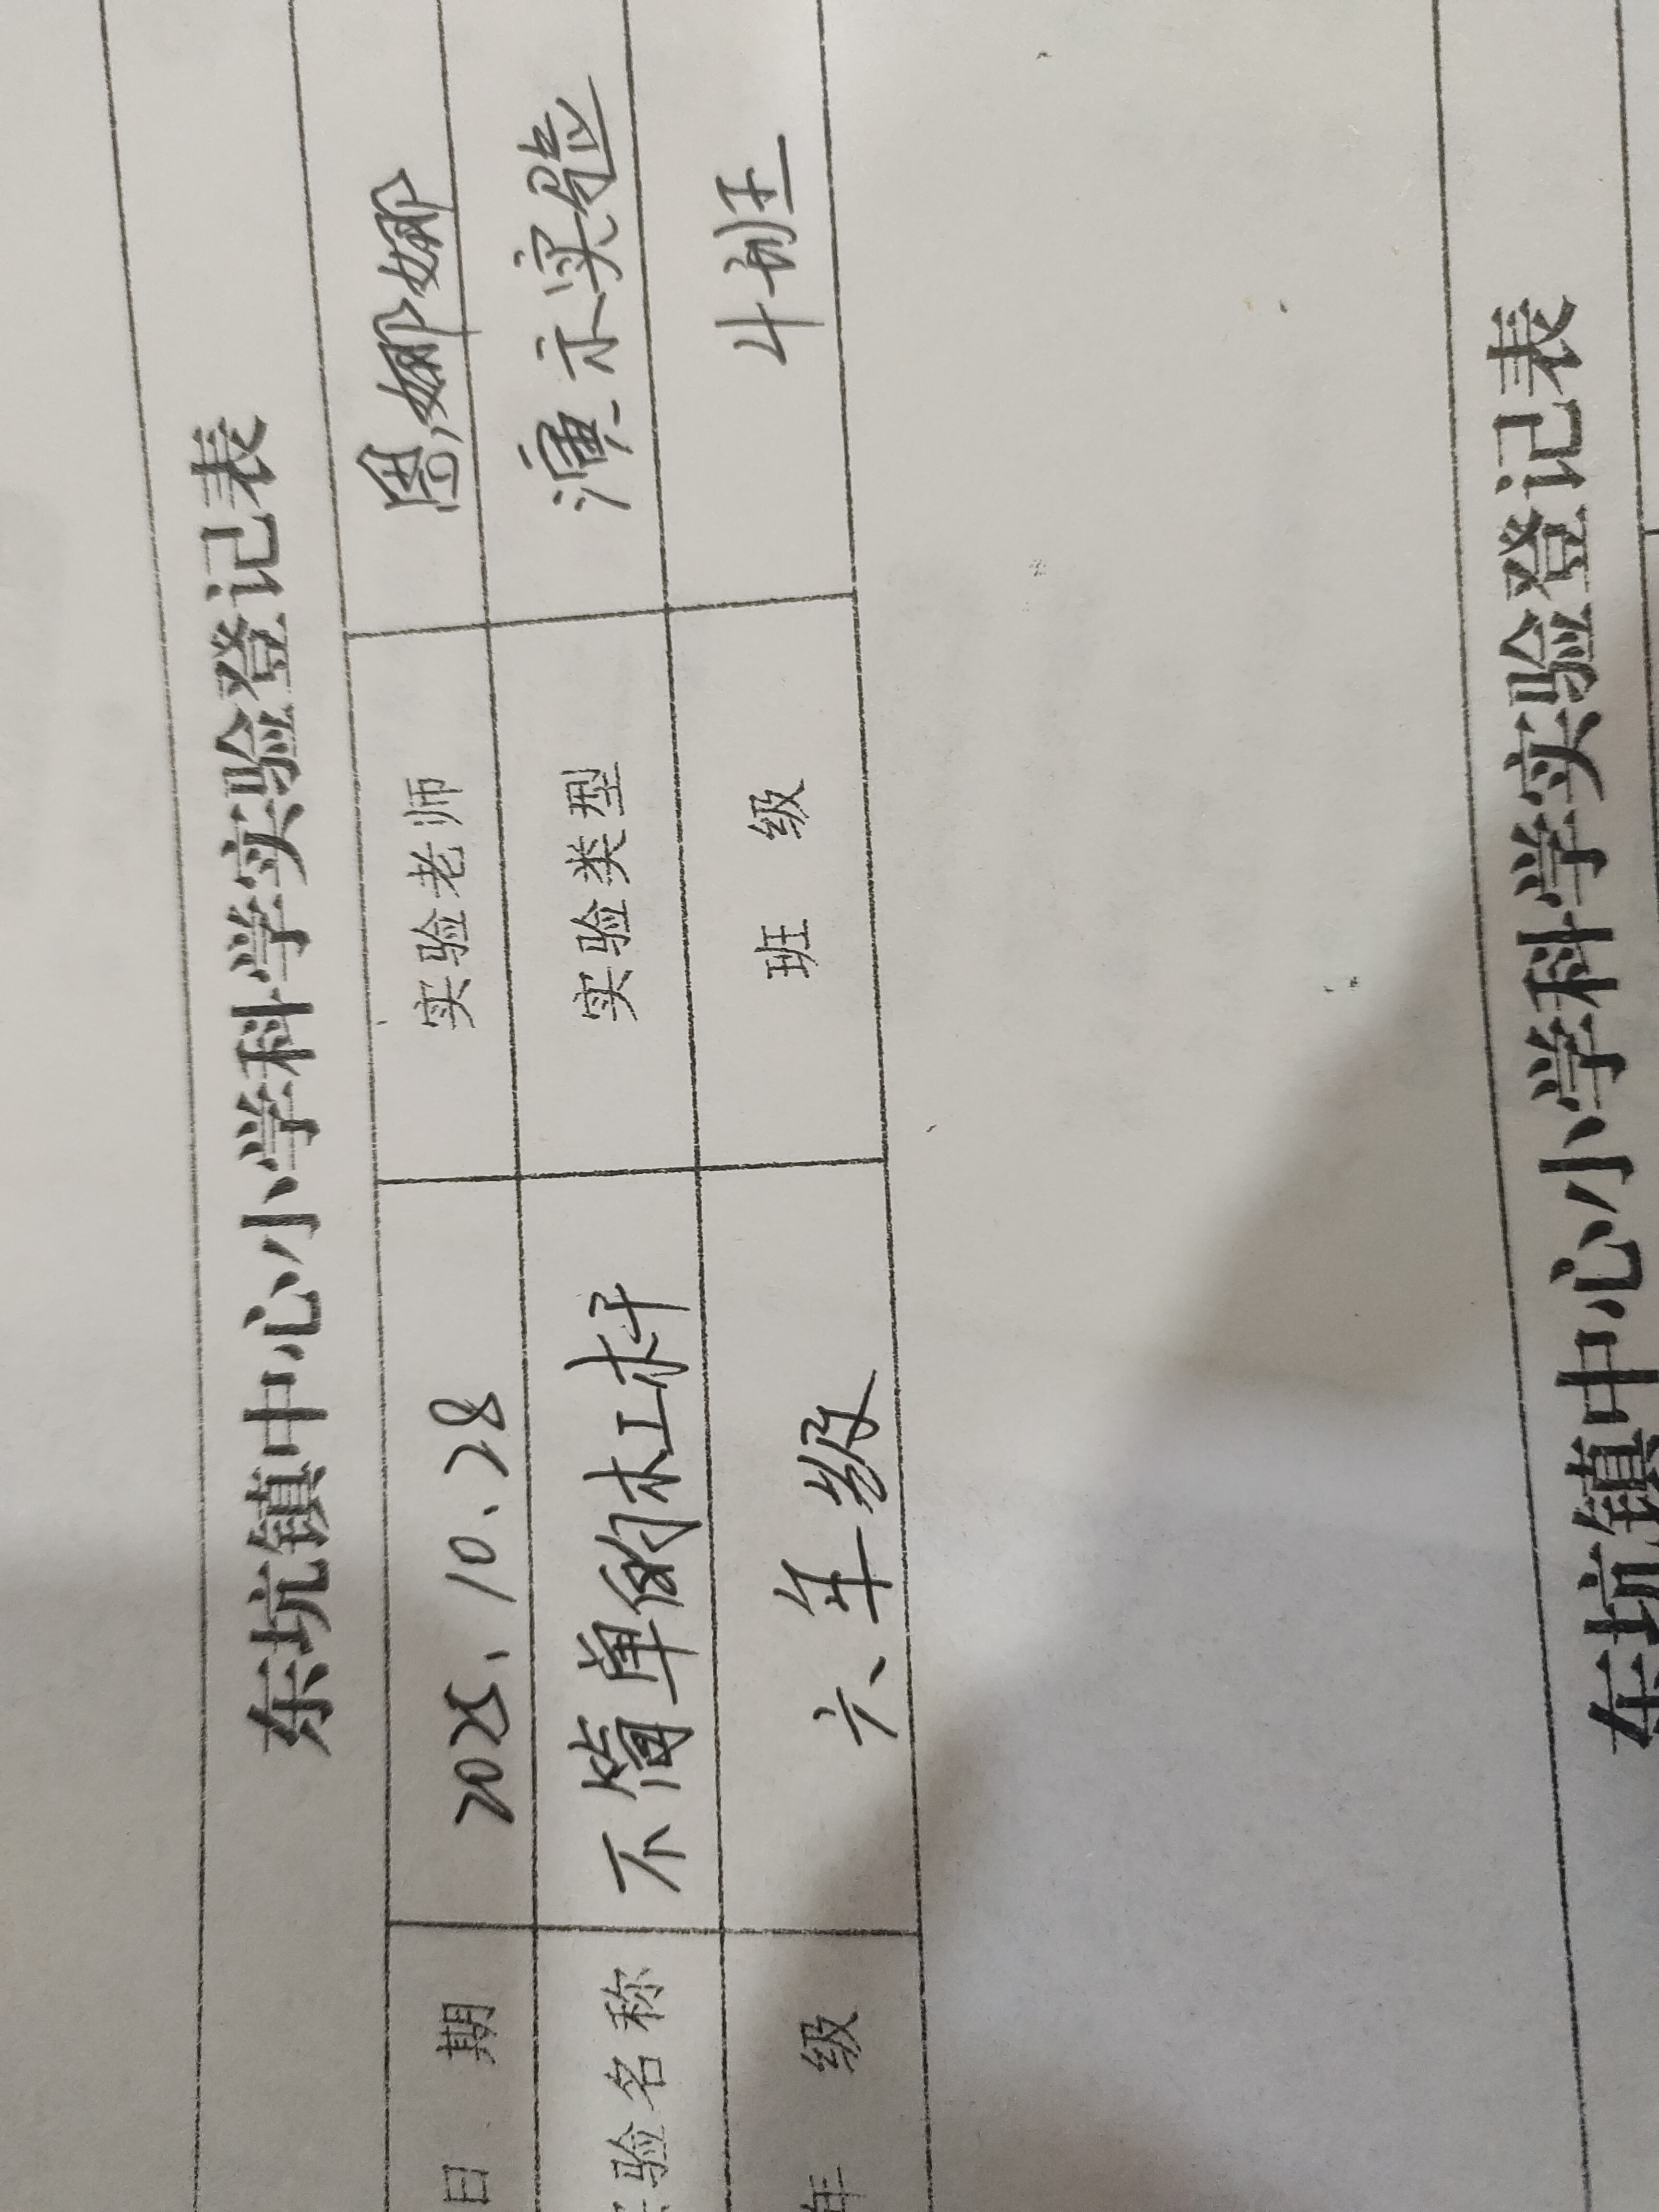 东坑镇中心小学科学实验登记表
日 期 2025.10.28 实验老师 周娜娜
实验名称 不简单的杠杆 实验类型 演示实验
年 级 六年级 班 级 4班
东坑镇中心小学科学实验登记表